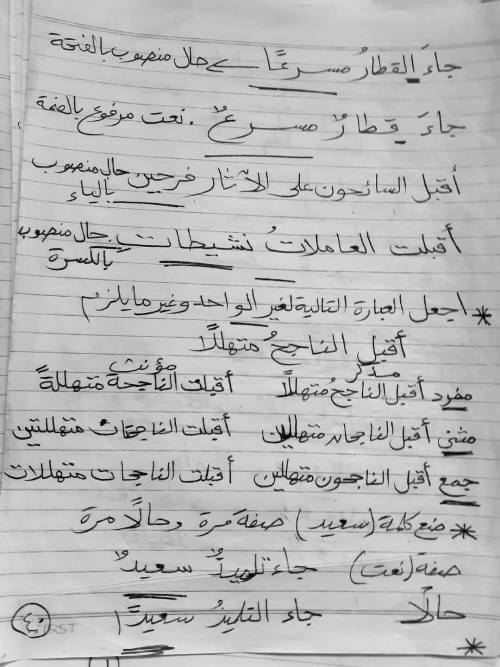 جاءَ القطارُ مسرعًا حال منصوب بالفتحة
جاءَ قطارٌ مسرعٌ . نعت مرفوع بالضمة
أقبل السائحون على الآثار فرحين حال منصوب بالياء
أقبلت العاملاتُ نشيطاتٍ حال منصوب بالكسرة
* اجعل العبارة التالية لغير الواحد وغير ما يلزم
أقبل الناجحُ متهللًا
مذكر مؤنث
مفرد أقبل الناجحُ متهللًا أقبلت الناجحة متهللةً
مثنى أقبل الناجحان متهللين أقبلت الناجحتان متهللتين
جمع أقبل الناجحون متهللين أقبلت الناجحات متهللات
* ضع كلمة (سعيد) صفة مرة وحالًا مرة
صفة (نعت) جاء تلميذٌ سعيدٌ
حالًا جاء التلميذُ سعيدًا
٤٠ FIRST
*